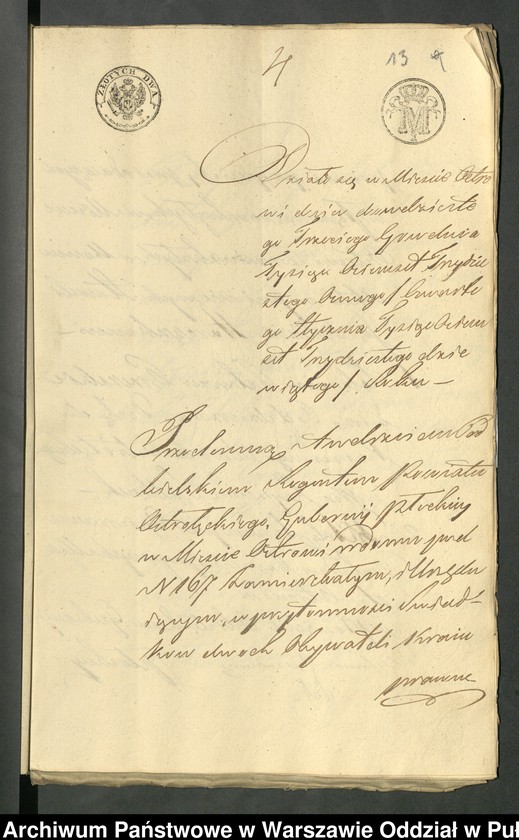 4
13
ZŁOTYCH DWA
M
Działo się w Mieście Ostro
wi dnia dwudzieste
go Trzeciego Grudnia
Tysiąc Ośmset Trzydzie
stego Osmego /: Czwarte
go Stycznia Tysiąc Ośm
set Trzydziestego dzie
wiątego /: Roku —
Przedemną Andrzeiem Pod
bielskim Regentem Powiatu
Ostrołęckiego, Gubernij Płockiey
w Mieście Ostrowi w domu pod
N 167 Zamieszkałym, i Urzędu
iącym, w przytomności Świad-
ków dwóch Obywateli Kraiu
prawne
Archiwum Państwowe w Warszawie Oddział w Puł